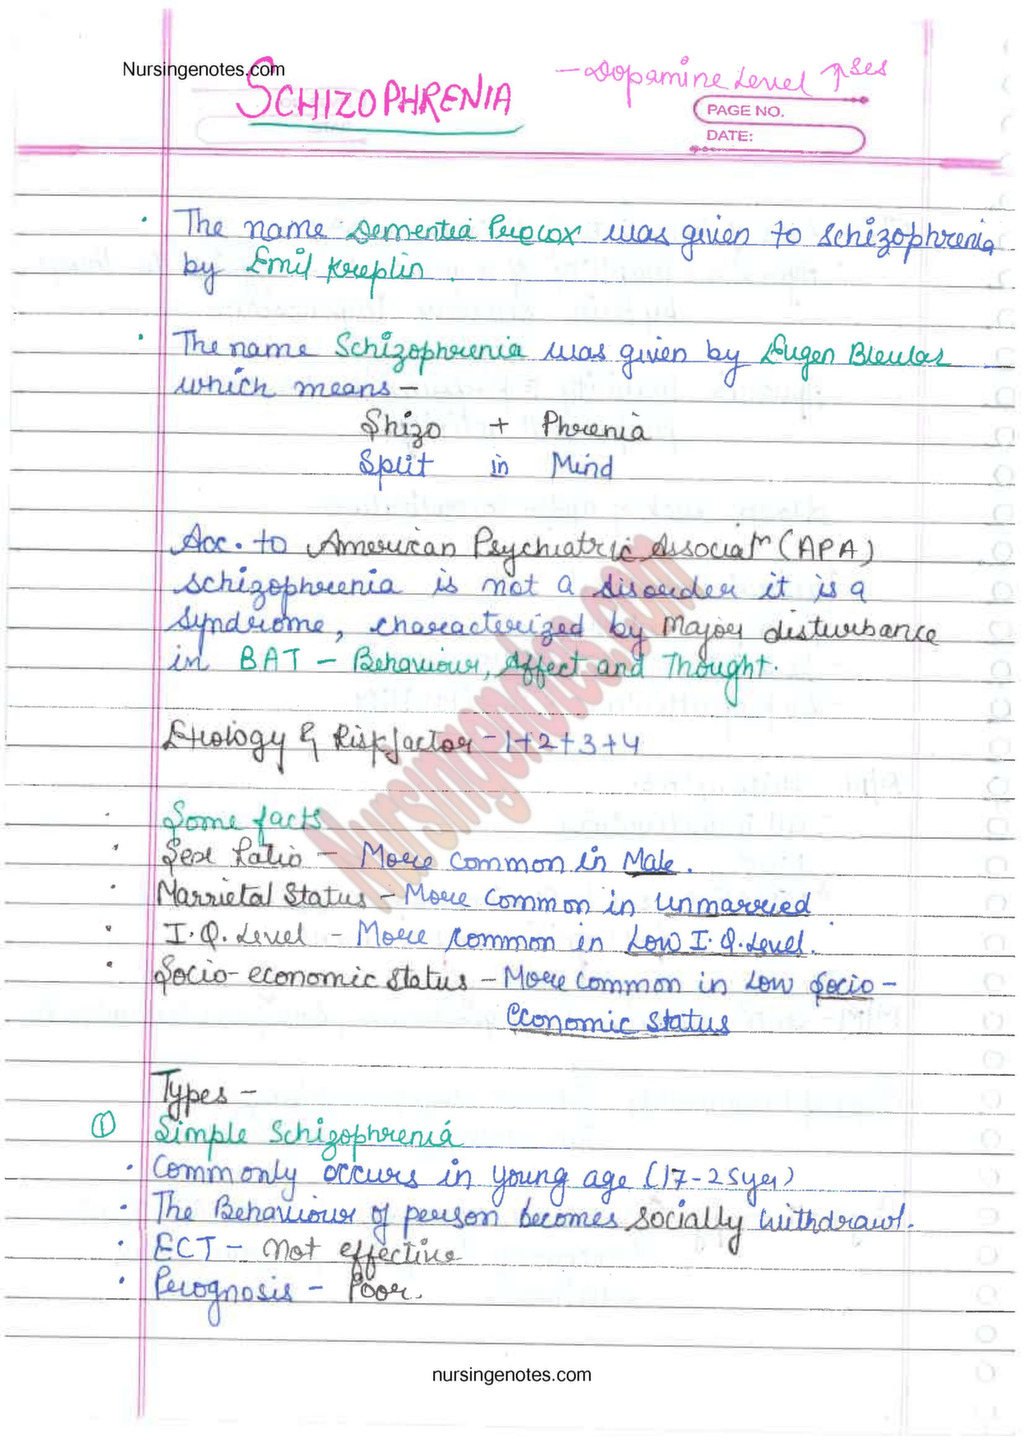 Nursingenotes.com
SCHIZOPHRENIA
- Dopamine Level ↑ses
PAGE NO.
DATE:
· The name Dementia Precox was given to schizophrenia
by Emil Kreplin.
· The name Schizophrenia was given by Eugen Bleular
which means -
Shizo + Phrenia
Split in Mind
Acc. to American Psychiatric Associatn (APA)
schizophrenia is not a disorder it is a
syndrome, characterized by Major disturbance
in BAT - Behaviour, Affect and Thought.
Etiology & Risk factor - 1+2+3+4
· Some facts
· Sex Ratio - More common in Male.
· Marrietal Status - More common in unmarried
· I.Q. Level - More common in Low I.Q. Level.
· Socio-economic status - More common in low socio-
economic status
Types -
① Simple Schizophrenia
· Commonly occurs in young age (17-25yer)
· The Behaviour of person becomes socially withdrawl.
· ECT - not effective
· Prognosis - Poor.
Nursingenotes.com
nursingenotes.com